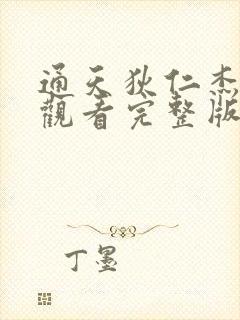 通天狄仁杰
觀看完整版
丁墨